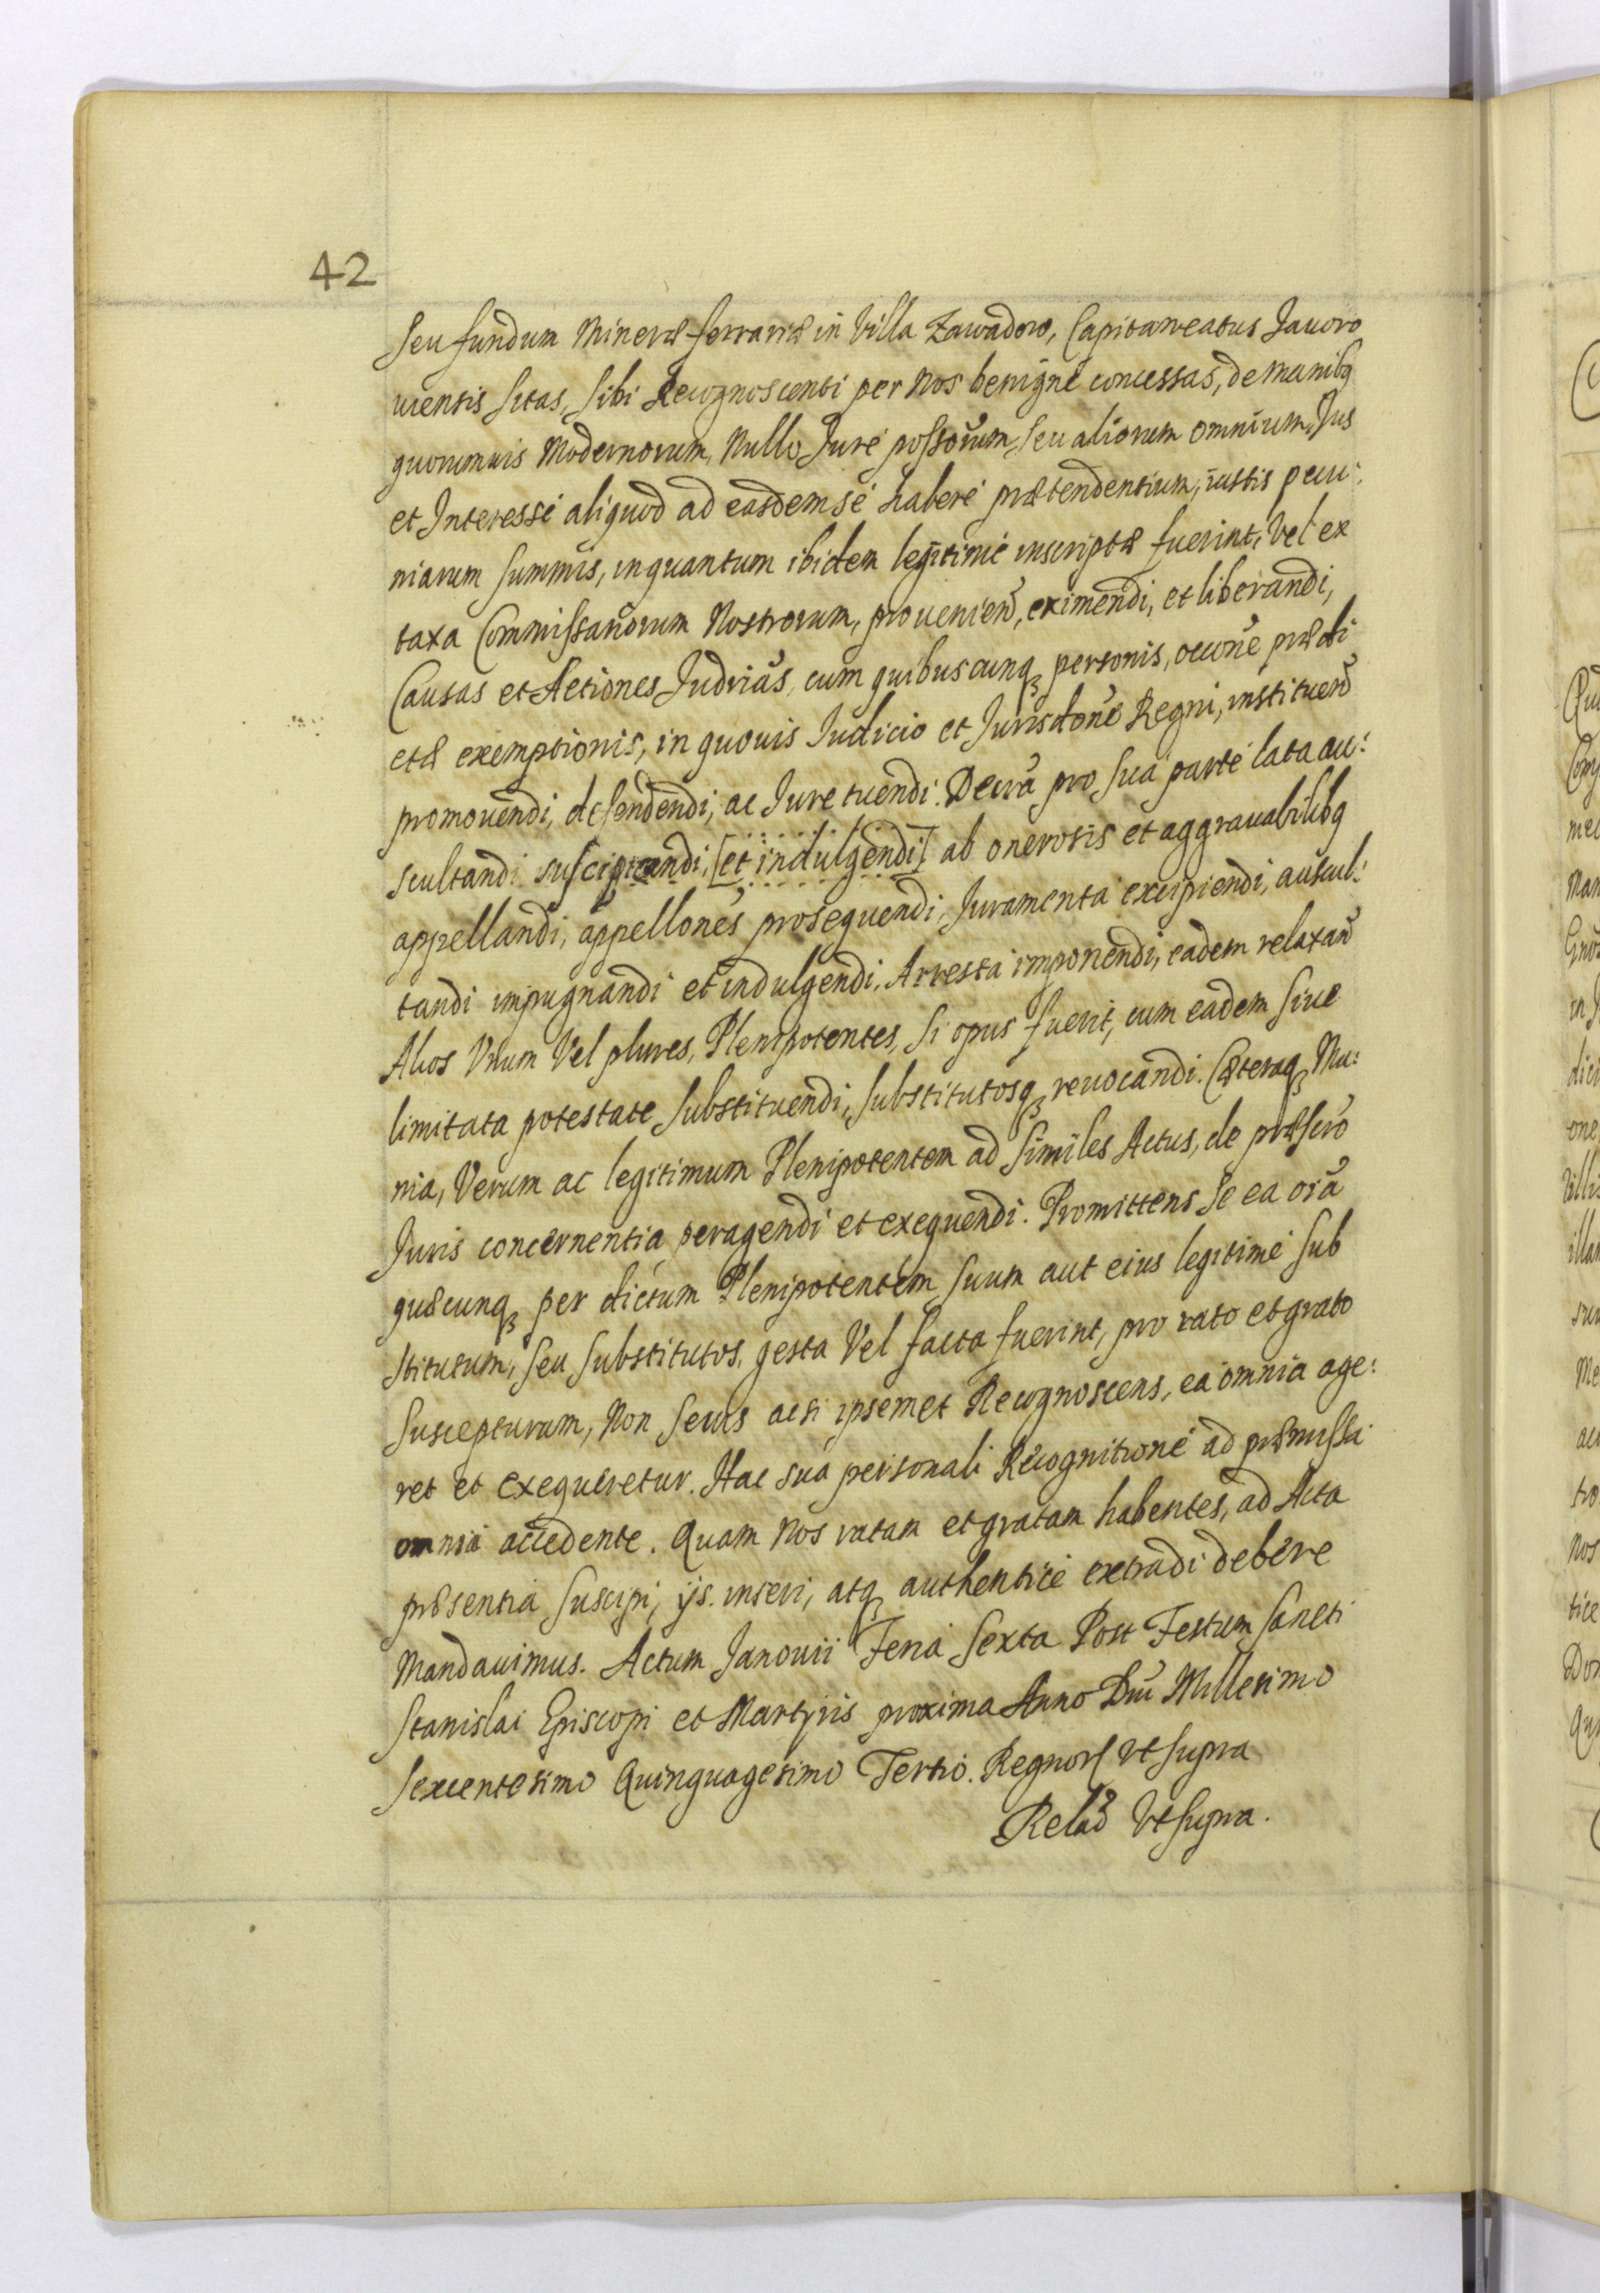 42
seu fundum Mineræ ferrariæ in Villa Zawadow, Capitaneatus Javoro
viensis sitas, sibi Recognoscenti per Nos benigné concessas, de manibq
quorumvis Modernorum, Nullo Jure possorum, seu aliorum omnium, Jus
et Interesse aliquod ad easdem sé haberé prætendentium, iustis pecu:
niarum summis, inquantum ibidem legitimé inscriptæ fuerint, Vel ex
taxa Commissariorum Nostrorum, provenien, eximendi, et liberandi,
Causas et Actiones Judrias, cum quibuscunq personis, occone prædi
ctæ exemptionis, in quovis Judicio et Jurisdone Regni, instituen
promovendi, defendendi, ac Jure tuendi. Decra pro sua parté lata au:
scultandi suscipiendi, [et indulgendi] ab onerosis et aggravabilibq
appellandi, appellones prosequendi, Juramenta excipiendi, auscul:
tandi impugnandi et indulgendi, Arresta imponendi, eadem relaxan
Alios Vnum Vel plures, Plenipotentes, si opus fuerit, cum eadem sive
limitata potestate substituendi, substitutosq revocandi. Cæteraq Mu:
nia, Verum ac legitimum Plenipotentem ad similes Actus, de præscro
Juris concernentia peragendi et exequendi. Promittens se ea oia
quæcunq per dictum Plenipotentem suum aut eius legitimé sub
stitutum, seu substitutos, gesta Vel facta fuerint, pro rato et grato
suscepturum, Non secus acsi ipsemet Recognoscens, ea omnia age:
ret et exequeretur. Hac sua personali Recognitioné ad præmissa
omnia accedente. Quam Nos ratam et gratam habentes, ad Acta
præsentia suscipi, ijs. inseri, atq authenticé extradi debere
Mandavimus. Actum Janovii Feria Sexta Post Festum Sancti
Stanislai Episcopi et Martyris proxima Anno Dni Millesimo
Sexcentesimo Quinquagesimo Tertio. Regnor Vt supra
Relao Vt supra.